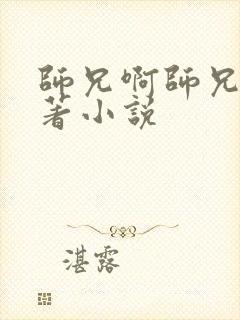 師兄啊師兄
著小説
湛露